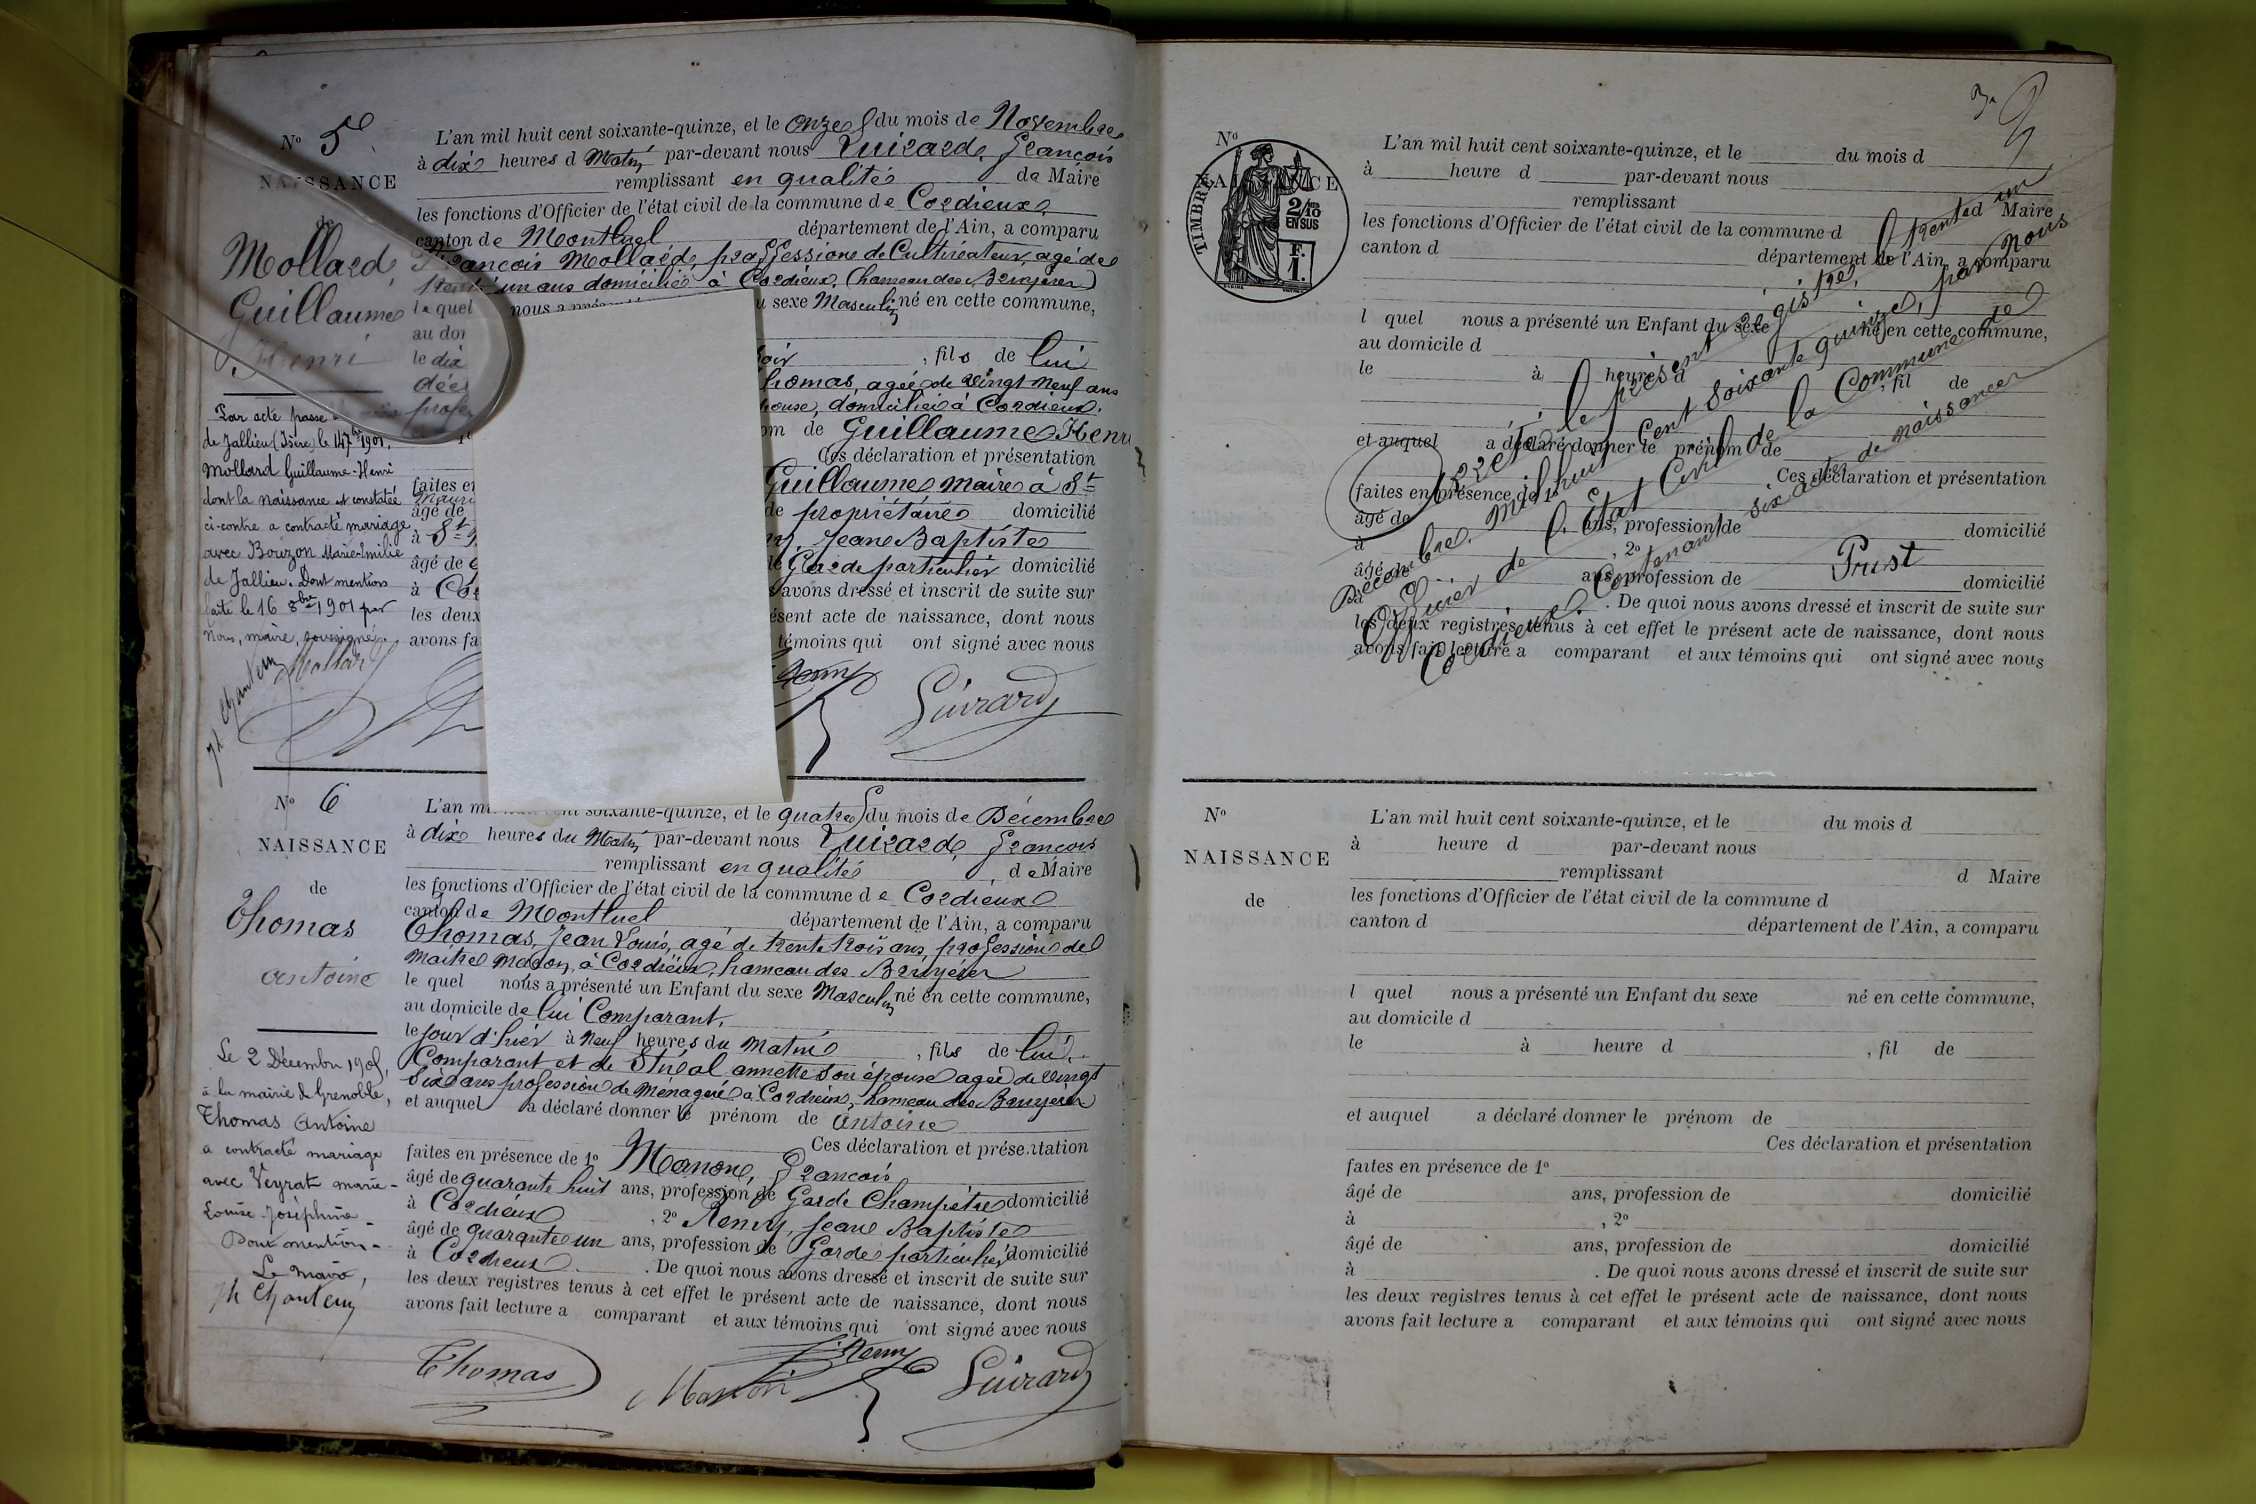 No 5
NAISSANCE
de
Mollard
Guillaume
Henri
Par acte passé
de Jallieu (Isère) le 14 7bre 1901,
Mollard Guillaume-Henri
dont la naissance est constatée
ci-contre a contracté mariage
avec Bouzon Marie-Emilie
de Jallieu. Dont mention
faite le 16 8bre 1901 par
Nous, maire, soussigné.
L'an mil huit cent soixante-quinze, et le onze du mois de Novembre
à dix heures d Matin par-devant nous Guirard, François
remplissant en qualité de Maire
les fonctions d'Officier de l'état civil de la commune de Cordieux
canton de Montluel département de l'Ain, a comparu
François Mollard, profession de Cultivateur, agé de
trente un ans domicilié à Cordieux, (hameau des Bruyères)
le quel nous a présenté u sexe Masculin né en cette commune,
au dom
le dix oir , fils de lui
décé homas, agée de vingt neuf ans
profes pouse, domiciliée à Cordieux.
om de Guillaume Henri
Ces déclaration et présentation
faites en Guillaume Maire à St
âgé de de propriétaire domicilié
à St Jean Baptiste
âgé de Garde particulier domicilié
à Cor s avons dressé et inscrit de suite sur
les deux ésent acte de naissance, dont nous
avons fa témoins qui ont signé avec nous
Mollard Remy Guirard
No 6
NAISSANCE
de
Thomas
Antoine
Le 2 Décembre 1905,
à la mairie de Grenoble,
Thomas Antoine
a contracté mariage
avec Veyrat Marie-
Louise Joséphine -
Dont mention -
Le Maire,
L'an m cent soixante-quinze, et le quatre du mois de Décembre
à dix heures du Matin par-devant nous Guirard, François
remplissant en qualité de Maire
les fonctions d'Officier de l'état civil de la commune de Cordieux
canton de Montluel département de l'Ain, a comparu
Thomas, Jean Louis, agé de trente trois ans, profession de
Maitre Maçon, à Cordieux, hameau des Bruyères
le quel nous a présenté un Enfant du sexe Masculin né en cette commune,
au domicile de lui Comparant,
le jour d'hier à Neuf heures du Matin , fils de lui
Comparant et de annette son épouse agée de vingt
six ans profession de Ménagère à Cordieux, hameau des Bruyères
et auquel a déclaré donner le prénom de Antoine
Ces déclaration et présentation
faites en présence de 1o Manon, François
âgé de quarante huit ans, profession de Garde Champêtre domicilié
à Cordieux , 2o Remy, Jean Baptiste
âgé de quarante un ans, profession de Garde particulier domicilié
à Cordieux . De quoi nous avons dressé et inscrit de suite sur
les deux registres tenus à cet effet le présent acte de naissance, dont nous
avons fait lecture a comparant et aux témoins qui ont signé avec nous
Thomas Manon Remy Guirard
No
NAISSANCE
TIMBRE
2/10
EN SUS
F.
1.
L'an mil huit cent soixante-quinze, et le du mois d
à heure d par-devant nous
remplissant Maire
les fonctions d'Officier de l'état civil de la commune d
canton d département de l'Ain, a comparu
l quel nous a présenté un Enfant du sexe né en cette commune,
au domicile d
le à heures d , fil de
et auquel a déclaré donner le prénom de
Ces déclaration et présentation
faites en présence de 1o
âgé de ans, profession de domicilié
à , 2o
âgé de ans, profession de domicilié
à . De quoi nous avons dressé et inscrit de suite sur
les deux registres tenus à cet effet le présent acte de naissance, dont nous
avons fait lecture a comparant et aux témoins qui ont signé avec nous
Arrêté le présent registre, trente un
Décembre mil huit cent soixante quinze, par Nous
Officier de l'Etat Civil de la Commune de
Cordieux. Contenant six actes de naissances
No
NAISSANCE
de
L'an mil huit cent soixante-quinze, et le du mois d
à heure d par-devant nous
remplissant d Maire
les fonctions d'Officier de l'état civil de la commune d
canton d département de l'Ain, a comparu
l quel nous a présenté un Enfant du sexe né en cette commune,
au domicile d
le à heure d , fil de
et auquel a déclaré donner le prénom de
Ces déclaration et présentation
faites en présence de 1o
âgé de ans, profession de domicilié
à , 2o
âgé de ans, profession de domicilié
à . De quoi nous avons dressé et inscrit de suite sur
les deux registres tenus à cet effet le présent acte de naissance, dont nous
avons fait lecture a comparant et aux témoins qui ont signé avec nous